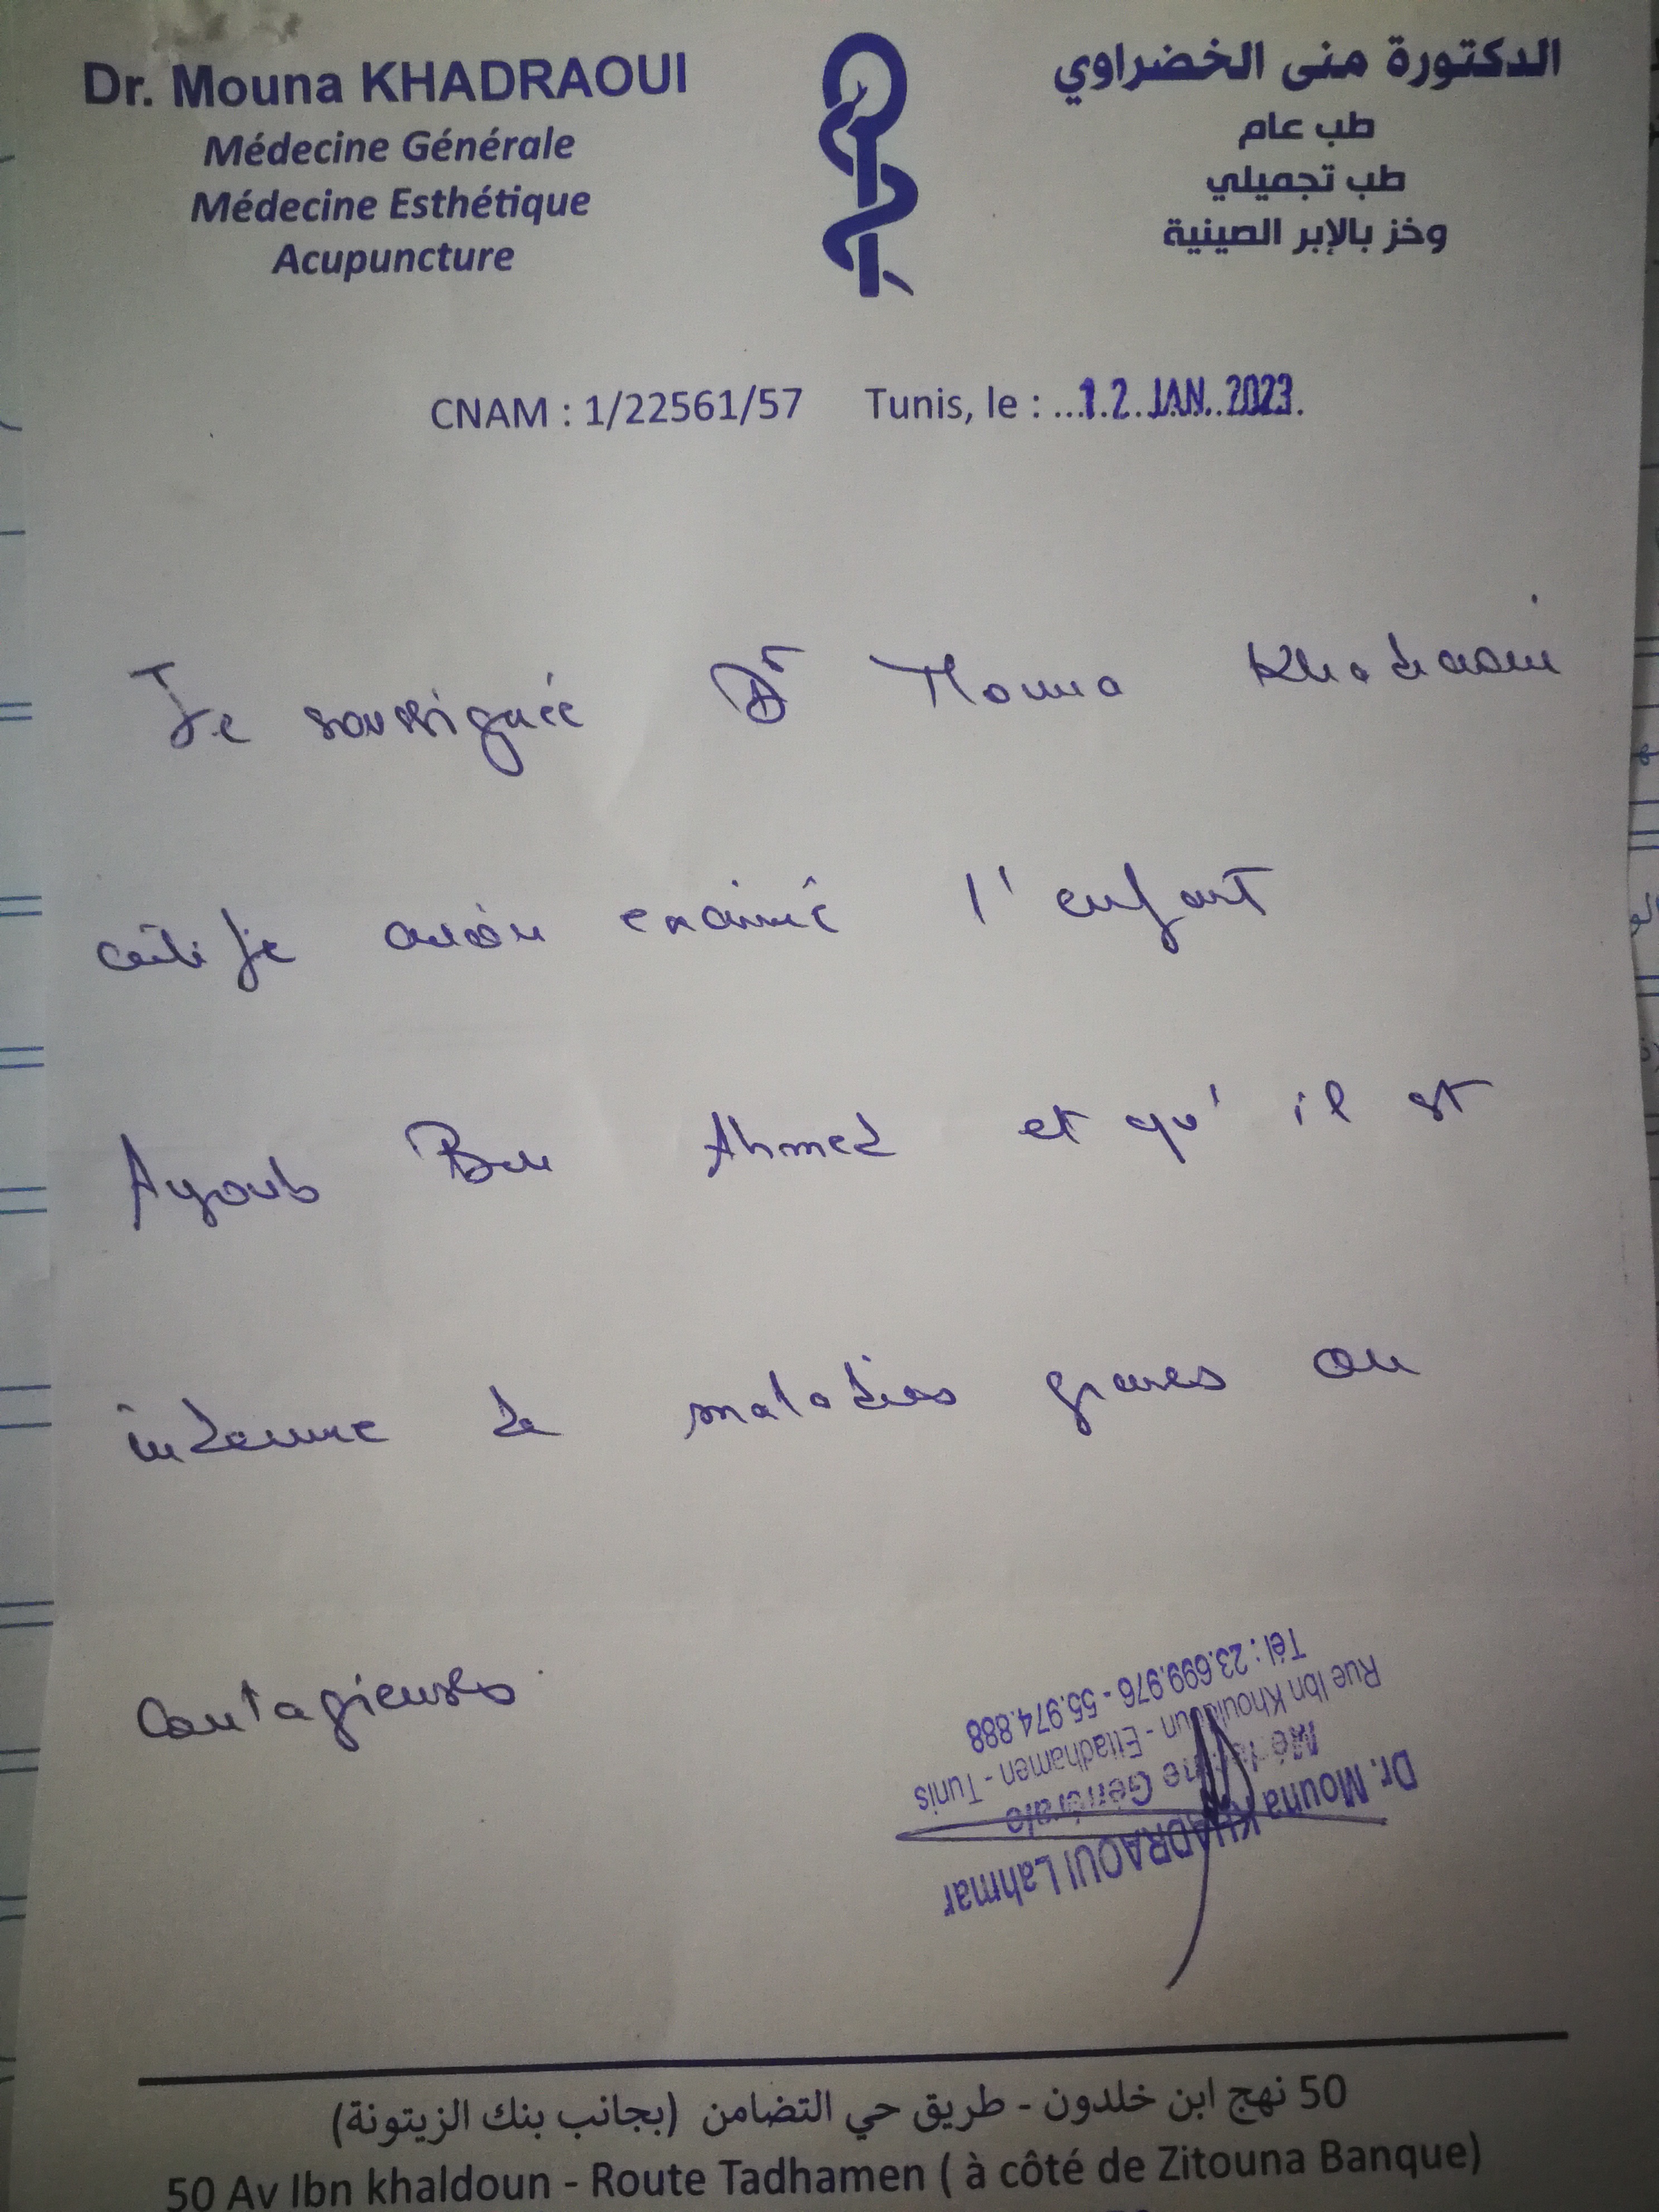 Dr. Mouna KHADRAOUI
Médecine Générale
Médecine Esthétique
Acupuncture
الدكتورة منى الخضراوي
طب عام
طب تجميلي
وخز بالإبر الصينية
CNAM : 1/22561/57 Tunis, le : ...12 JAN. 2023.
Je soussignée Dr Mouna Khadraoui
certifie avoir examiné l'enfant
Ayoub Ben Ahmed et qu'il est
indemne de maladies graves ou
Contagieuses.
Dr. Mouna KHADRAOUI Lahmar
Médecine Générale
Rue Ibn Khouldoun - Ettadhamen - Tunis
Tél : 23.699.976 - 55.974.888
50 نهج ابن خلدون - طريق حي التضامن (بجانب بنك الزيتونة)
50 Av Ibn khaldoun - Route Tadhamen ( à côté de Zitouna Banque)